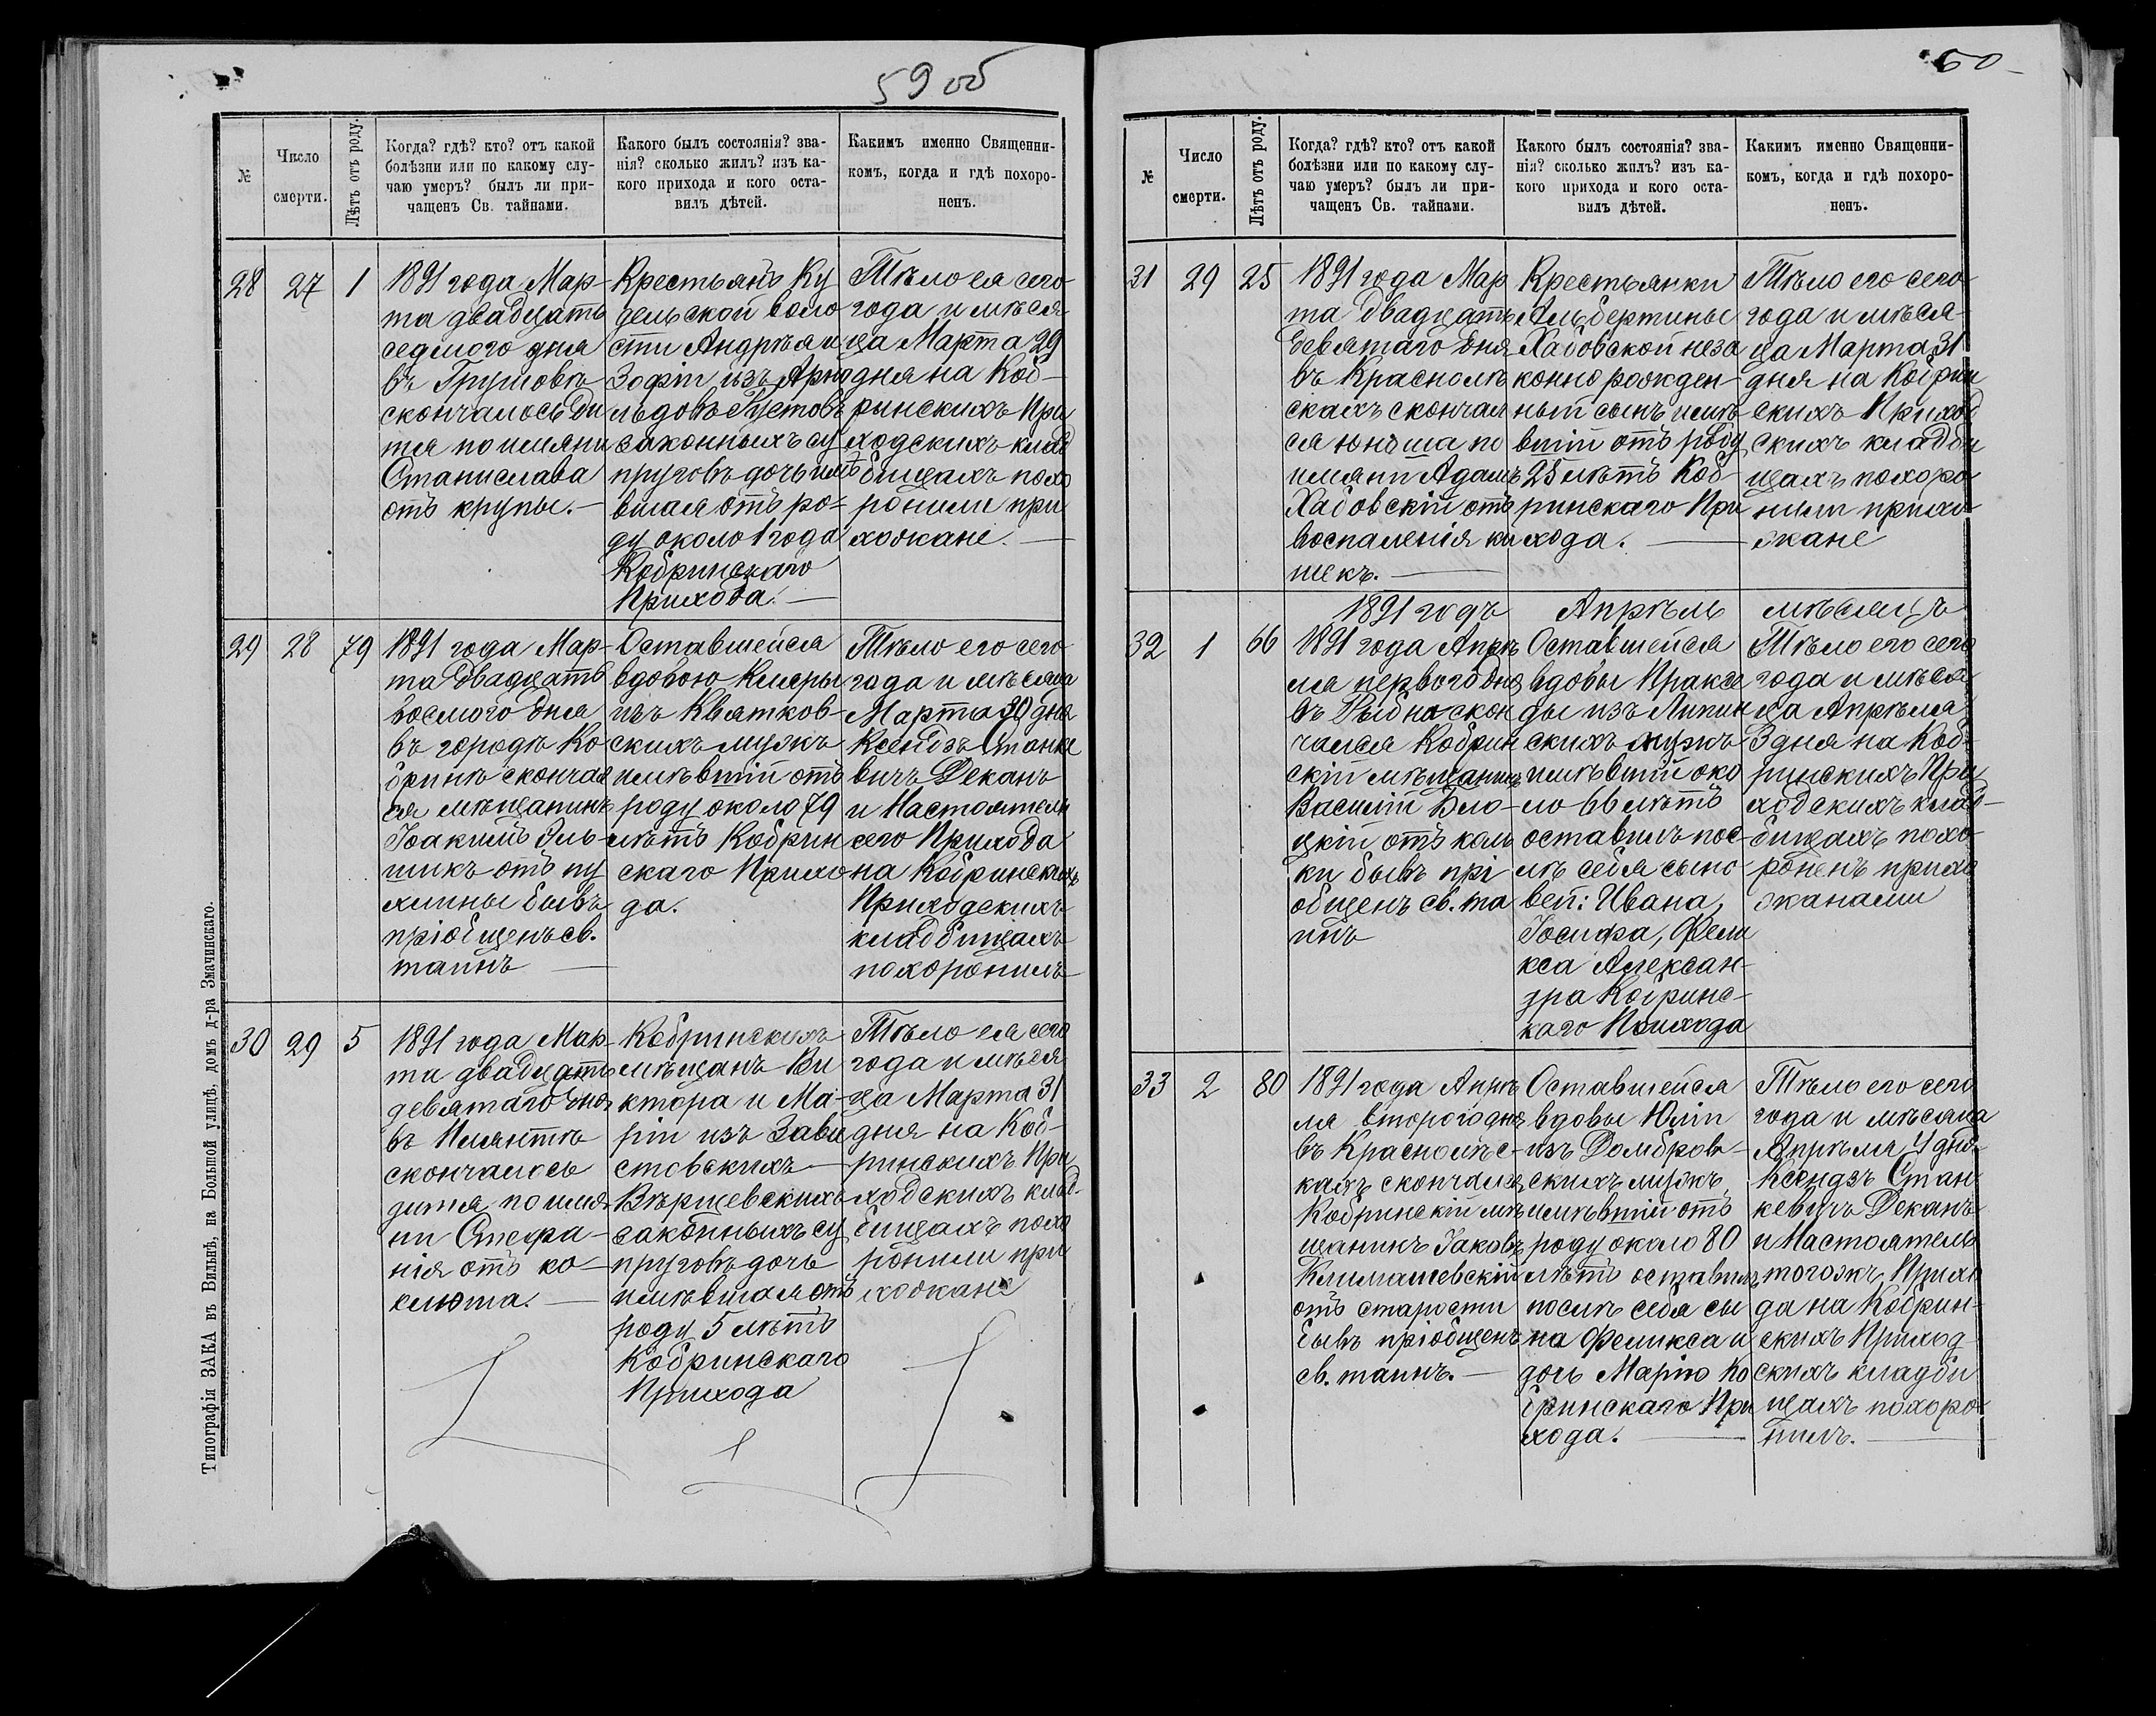 59 об
№
Число смерти.
Лѣтъ отъ роду.
Когда? гдѣ? кто? отъ какой
болѣзни или по какому слу-
чаю умеръ? былъ ли при-
чащенъ Св. тайнами.
Какого былъ состоянія? зва-
нія? сколько жилъ? изъ ка-
кого прихода и кого оста-
вилъ дѣтей.
Какимъ именно Священни-
комъ, когда и гдѣ похоро-
ненъ.
28
27
1
1891 года Мар-
та двадцать
седмого дня
въ Грушовкѣ
скончалось ди
тя по имяни
Станислава
отъ крупы.
Крестьянъ
дельской воло
сти Андрѣя и
Зофіи изъ Арно
льдовъ
законныхъ су
пруговъ дочь имѣ
вшая отъ ро-
ду около 1 года
Кобринскаго
Прихода.
Тѣло ея сего
года и мѣся-
ца Марта 29
дня на Коб-
ринскихъ При
ходскихъ клад
бищахъ похо
ронили при
хожане.
29
28
79
1891 года Мар-
та двадцать
восмого дня
въ городѣ Ко-
бринѣ скончал
ся мѣщанинъ
Іоакимъ
отъ пу
хлины бывъ
пріобщенъ св.
таинъ
Оставшейся
вдовою
изъ Квятков-
скихъ мужъ
имѣвшій отъ
роду около 79
лѣтъ Кобрин
скаго Прихо
да.
Тѣло его сего
года и мѣсяца
Марта 30 дня
Ксендзъ Станке
вичъ Деканъ
и Настоятель
сего Прихода
на Кобринскихъ
Приходскихъ
кладбищахъ
похоронилъ
30
29
5
1891 года Мар-
та двадцать
девятаго дня
въ
скончалось
дитя по имя
ни Стефа-
нія отъ ко-
клюша.
Кобринскихъ
мѣщанъ Ви
ктора и Ма-
ріи изъ Зави
стовскихъ
Вѣршевскихъ
законныхъ су
пруговъ дочь
имѣвшая отъ
роду 5 лѣтъ
Кобринскаго
Прихода
Тѣло ея сего
года и мѣся
ца Марта 31
дня на Коб-
ринскихъ При
ходскихъ клад-
бищахъ похо
ронили при
хожане
Типографія ЗАКА въ Вильнѣ, на Большой улицѣ, домъ д-ра Змачинскаго.
60
№
Число смерти.
Лѣтъ отъ роду.
Когда? гдѣ? кто? отъ какой
болѣзни или по какому слу-
чаю умеръ? былъ ли при-
чащенъ Св. тайнами.
Какого былъ состоянія? зва-
нія? сколько жилъ? изъ ка-
кого прихода и кого оста-
вилъ дѣтей.
Какимъ именно Священни-
комъ, когда и гдѣ похоро-
ненъ.
31
29
25
1891 года Мар
та двадцать
девятаго дня
въ Краснолѣ
скахъ скончал
ся юноша по
имяни Адамъ
Хадовскій отъ
воспаленія ки
шекъ.
Крестьянки
Альбертины
Хадовской неза
конно рожден-
ный сынъ имѣ
вшій отъ роду
25 лѣтъ Коб-
ринскаго При
хода.
Тѣло его сего
года и мѣся-
ца Марта 31
дня на Кобрин
скихъ Приход
скихъ кладби
щахъ похоро
нили прихо
жане
1891 годъ Апрѣль мѣсяцъ
32
1
66
1891 года Апрѣ
ля первого дня
въ Рыбна скон
чался Кобрин
скій мѣщанинъ
Василій
отъ коли
ки бывъ прі
общенъ св. та
инъ
Оставшейся
вдовы Праксе
ды изъ Липин
скихъ мужъ
имѣвшій око
ло 66 лѣтъ
оставилъ пос-
лѣ себя сыно
вей: Ивана,
Іосифа, Фели
кса Алексан-
дра Кобринс-
каго Прихода
Тѣло его сего
года и мѣся
ца Апрѣля
3 дня на Коб-
ринскихъ При
ходскихъ клад-
бищахъ похо-
роненъ прихо
жанами
33
2
80
1891 года Апрѣ
ля второго дня
въ Краснолѣс-
кахъ скончался
Кобринскій мѣ
щанинъ Іаковъ
Климашевскій
отъ старости
бывъ пріобщенъ
св. таинъ.
Оставшейся
вдовы Юліи
изъ Домбров-
скихъ мужъ
имѣвшій отъ
роду около 80
лѣтъ оставилъ
послѣ себя сы
на Феликса и
дочь Марію Ко
бринскаго При
хода.
Тѣло его сего
года и мѣсяца
Апрѣля 4 дня
Ксендзъ Стан
кевичъ Деканъ
и Настоятель
тогожъ Прихо
да на Кобрин-
скихъ Приход
скихъ кладби
щахъ похоро
нилъ.